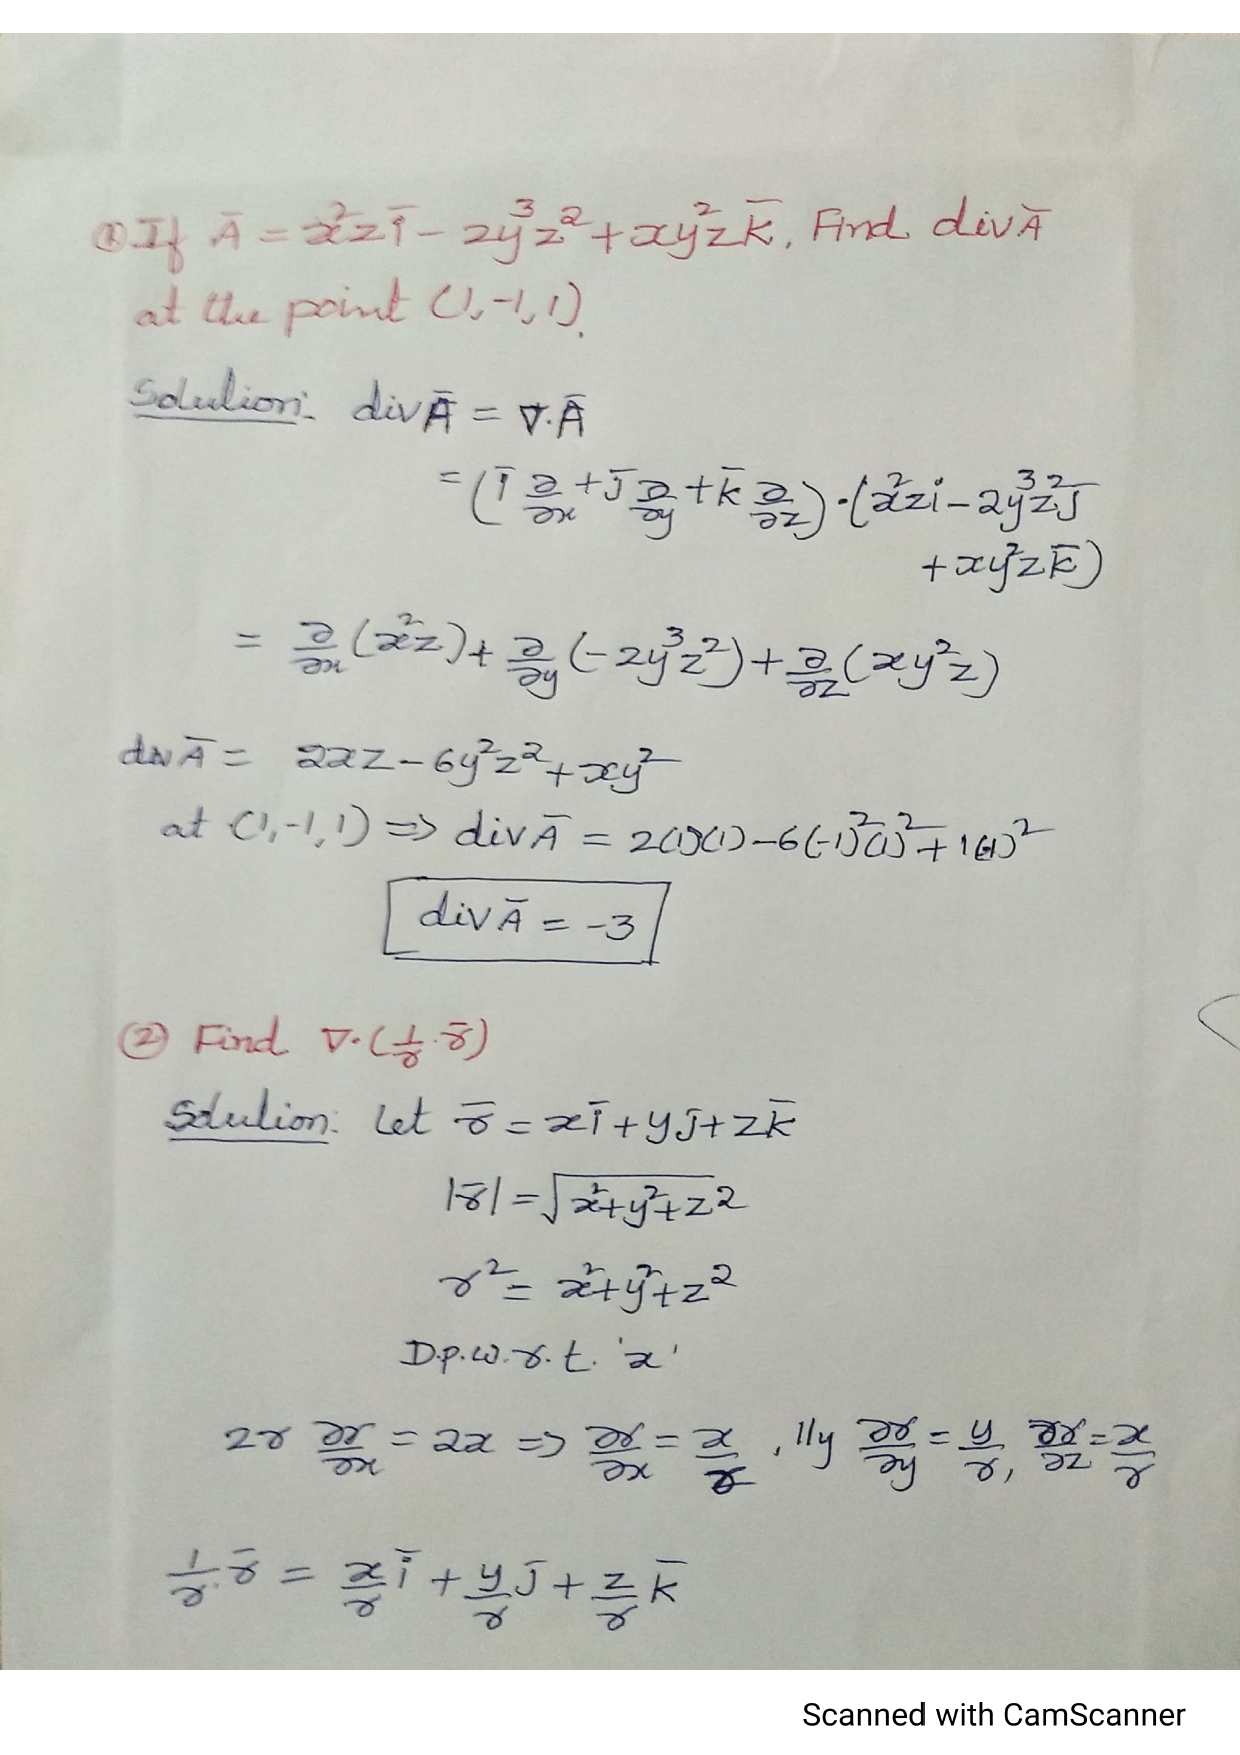 ① If Ā = x²z ī − 2y³z² + xy²z k̄, Find div Ā
at the point (1,-1,1).
Solution: div Ā = ∇·Ā
= (ī ∂/∂x + j̄ ∂/∂y + k̄ ∂/∂z)·(x²z i − 2y³z² j̄
+ xy²z k̄)
= ∂/∂x (x²z) + ∂/∂y (−2y³z²) + ∂/∂z (xy²z)
div Ā = 2xz − 6y²z² + xy²
at (1,-1,1) ⇒ div Ā = 2(1)(1) − 6(-1)²(1)² + 1(-1)²
div Ā = -3
② Find ∇·(1/r · r̄)
Solution: Let r̄ = x ī + y j̄ + z k̄
|r̄| = √x²+y²+z²
r² = x²+y²+z²
D.p.w.r.t. 'x'
2r ∂r/∂x = 2x ⇒ ∂r/∂x = x/r, lly ∂r/∂y = y/r, ∂r/∂z = x/r
1/r · r̄ = x/r ī + y/r j̄ + z/r k̄
Scanned with CamScanner